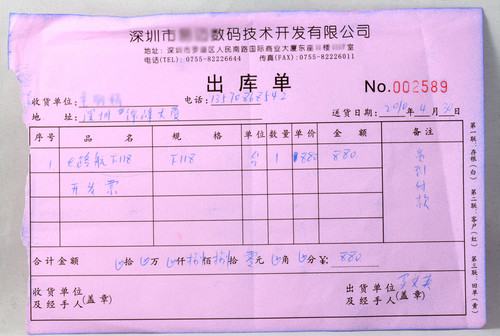 深圳市 数码技术开发有限公司
地址：深圳市罗湖区人民南路国际商业大厦东座 楼 室
电话(TEL)：0755-82226644 传真(FAX)：0755-82226011
出库单 No.002589
收货单位： 电话：
地 址：深圳市 大厦 送货日期：2010年4月30日
序号 品名 规格 单位 数量 单价 金额 备注
1 E路航T118 T118 台 1 880 880 货到付款
开发票
合计金额 拾 万 仟 佰 拾 零元 角 分¥：880
收货单位及经手人(盖章) 出货单位及经手人(盖章)
第一联：存根(白) 第二联：客户(红) 第三联：回单(黄)